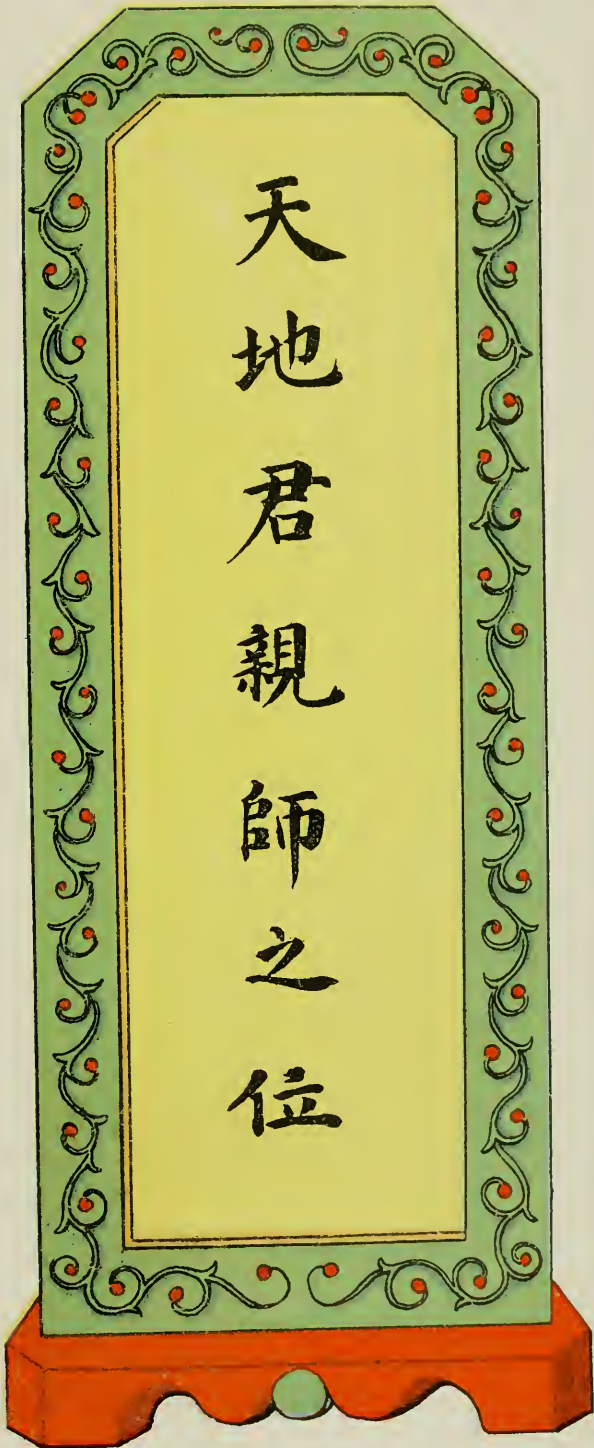 天地君親師之位